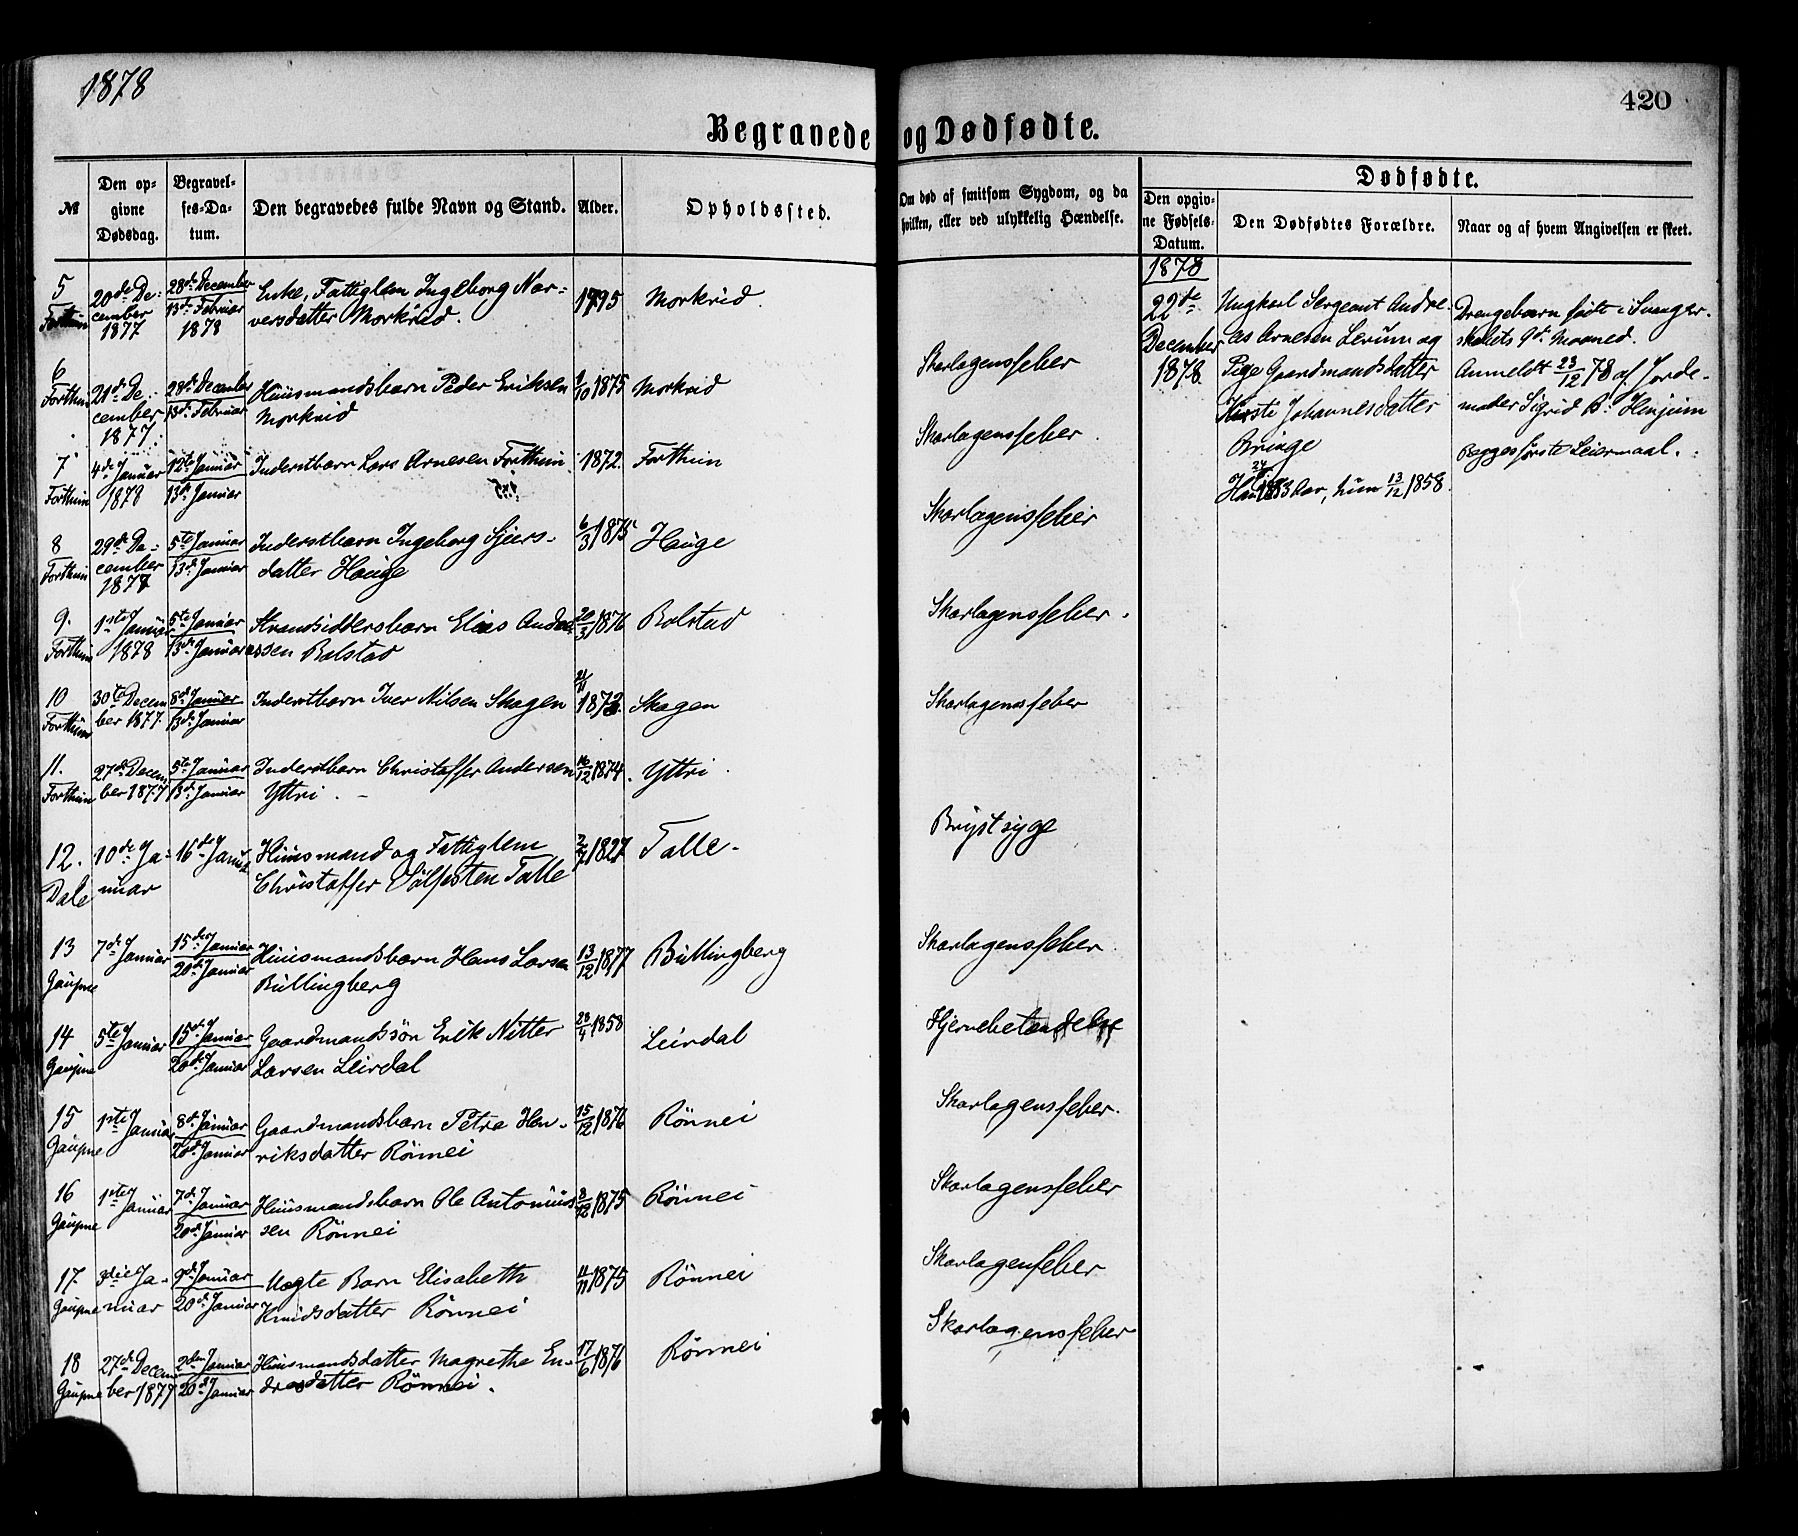 1878
420
Begravede og Dødfødte.
№
Den op-
givne
Dødsdag.
Begravel-
ses-Da-
tum.
Den begravedes fulde Navn og Stand.
Alder.
Opholdssted.
Om død af smitsom Sygdom, og da
hvilken, eller ved ulykkelig Hændelse.
Dødfødte.
Den opgiv-
ne Fødsels-
Datum.
Den Dødfødtes Forældre.
Naar og af hvem Angivelsen er skeet.
5 Forthun
20de De-
cember
1877
28de December
13de Februar
1878
Enke, Fattiglem Ingeborg Nor-
versdatter Morkrid.
1795
Morkrid.
6 Forthun
21de De-
cember
1877.
28de December
13de Februar
Huusmandsbarn Peder Eriksen
Morkrid
1/10 1875
Morkrid
Skarlagensfeber
7 Forthun
4de Januar
1878
12te Januar
13de Januar
Inderstbarn Lars Arnesen Forthun.
1872.
Forthun
Skarlagensfeber.
8 Forthun
29de De-
cember
1877
5te Januar
13de Januar
Inderstbarn Ingeborg Sjurs-
datter Hauge
6/3 1875
Hauge
Skarlagensfeber
9. Forthun
1ste Januar
1878
5te Januar
13de Januar
Strandsiddersbarn Elias Andre-
assen Bolstad
20/3 1876
Bolstad
Skarlagensfeber.
10 Forthun
30te Decem
ber 1877
8de Januar
13de Januar
Inderstbarn Iver Nilsen Skagen
1873.
Skagen
Skarlagensfeber
11. Forthun
27de Decem
ber 1877
5te Januar
13de Januar
Inderstbarn Christoffer Andersen
Yttri.
16/12 1874.
Yttri.
12. Dale
10de Ja-
nuar
16de Januar
Huusmand og Fattiglem
Christoffer Sølfesten Talle
1827
Talle.
Brystsyge
13 Gaupne
7de Januar
15de Januar
20de Januar
Huusmandsbarn Hans Larsen
Bullingberg
13/12 1877
Bullingberg
Skarlagensfeber.
14 Gaupne
5te Januar
15de Januar
20de Januar
Gaardmandssøn Erik Nitter
Larsen Leirdal
23/4 1858
Leirdal
Hjernebetændelse
15 Gaupne
1ste Januar
8de Januar
20de Januar
Gaardmandsbarn Petra Hen-
riksdatter Rönnei
15/12 1876
Rönnei
Skarlagensfeber.
16 Gaupne
1ste Januar
7de Januar
20de Januar
Huusmandsbarn Ole Antonius-
sen Rönnei
3/12 1875
Rönnei
Skarlagensfeber
17 Gaupne
3die Ja-
nuar
9de Januar
20de Januar
Uægte Barn Elisabeth
Knudsdatter Rönnei
11/11 1875
Rönnei
Skarlagenfeber
18 Gaupne
27de Decem
ber 1877
2den Januar
20de Januar
Huusmandsdatter Magrethe En-
dresdatter Rönnei.
17/6 1876
Rönnei
Skarlagensfeber
1878
22de
December
1878.
Ungkarl Sergeant Andre-
as Arnesen Lerum og
Pige Gaardmandsdatter
Kirsti Johannesdatter
Bringe
Han 24 Aar, hun 13/12 1858.
Drengebarn født i Svanger-
skabets 9de Maaned.
Anmeldt 23/12 78 af Jorde-
moder Sigrid B. Hinjum
Begges første Leiermaal.